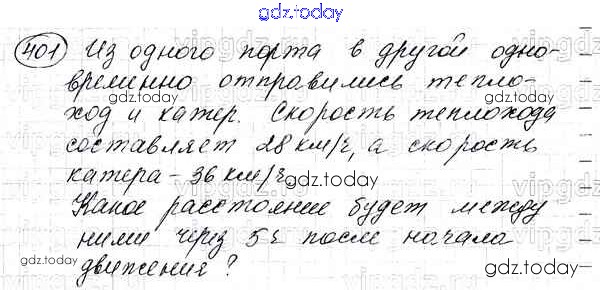 gdz.today
401 Из одного порта в другой одно-
временно отправились тепло-
ход и катер. Скорость теплохода
составляет 28 км/г, а скорость
катера – 36 км/г.
Какое расстояние будет между
ними через 5г после начала
движения?
gdz.today
gdz.today
gdz.today
gdz.today
gdz.today
gdz.today
gdz.today